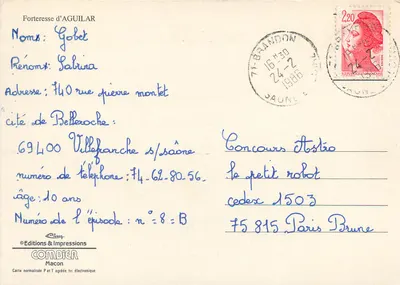 Forteresse d'AGUILAR
Noms: Gobet
Rénoms: Sabrina
Adresse: 740 rue pierre montet
cité de Belleroche:
69400 Villefranche s/saône
numéro de telephone: 74-62-80-56.
âge: 10 ans
Numéro de l'épisode: n°=8=B
Editions & Impressions
COMBIER
Macon
Carte normalisée P et T agréée ind. électronique
71-BRANDON
16 H30
24-2
1986
SAONE
2,20
Concours Astro
le petit robot
cedex 1503
75815 Paris Brune